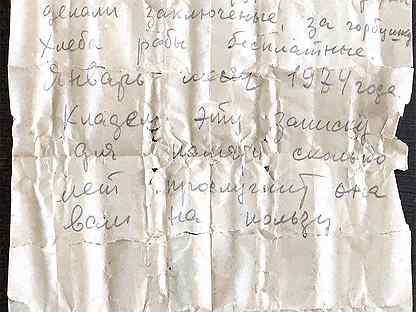 делали заключеные, за горбушку
хлеба рабы бесплатные.
Январь месяц 1974 года
Кладем эту записку
для памяти сколько
лет прослужит она
вам на пользу.